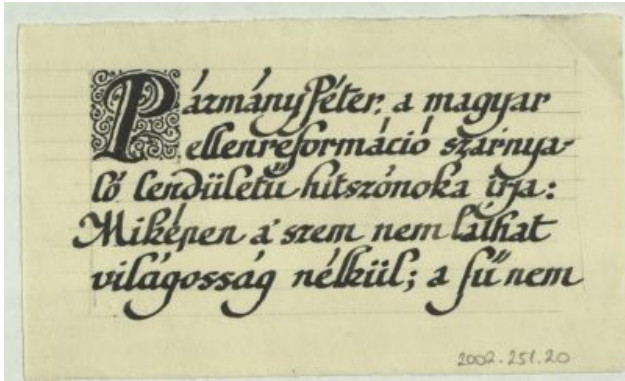 Pázmány Péter, a magyar
ellenreformáció szárnya-
ló lendületű hitszónoka írja:
Miképen a' szem nem láthat
világosság nélkül; a fű nem
2002.251.20